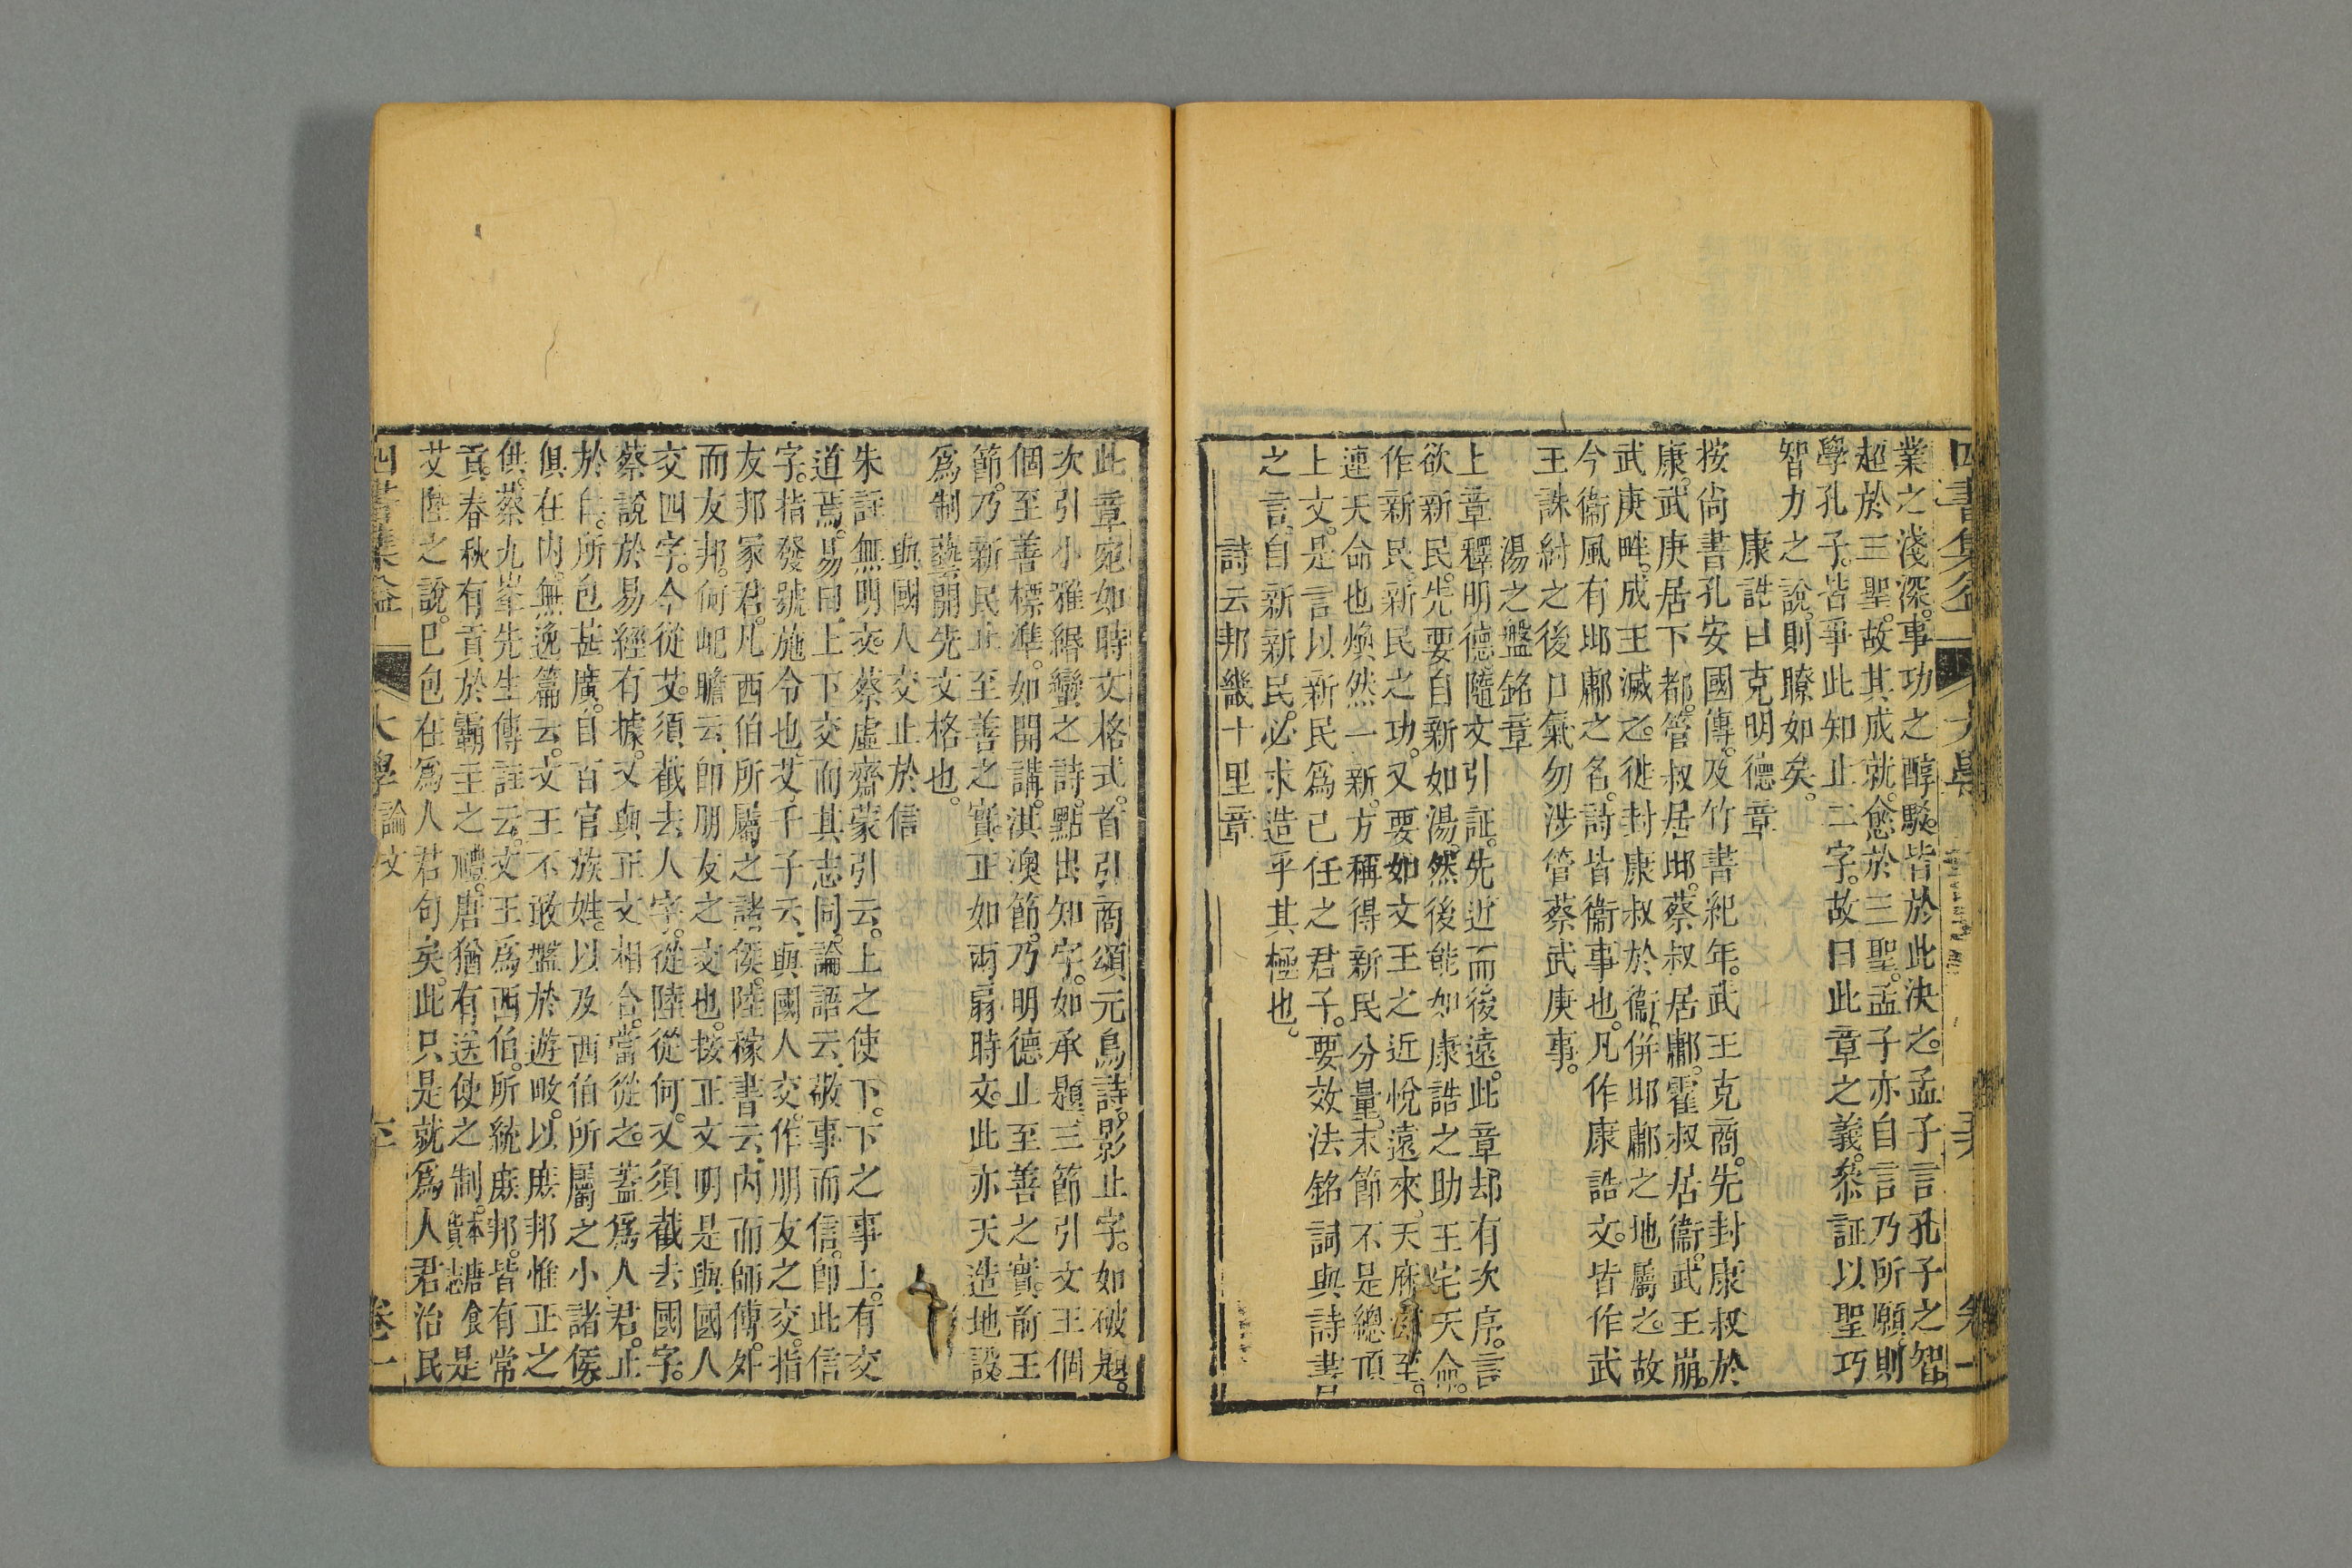 業之淺深。事功之醇駁。皆於此決之。孟子言孔子之智。
超於三聖。故其成就。愈於三聖。孟子亦自言乃所願。則
學孔子。皆爭此知止二字。故曰此章之義。叅証以聖巧
智力之說。則瞭如矣。
康誥曰克明德章
按尚書孔安國傳。及竹書紀年。武王克商。先封康叔於
康。武庚居下都。管叔居鄁。蔡叔居鄘。霍叔居衞。武王崩。
武庚畔。成王滅之。徙封康叔於衞。併鄁鄘之地屬之。故
今衞風有鄁鄘之名。詩皆衞事也。凡作康誥文。皆作武
王誅紂之後口氣勿涉管蔡武庚事。
湯之盤銘章
上章釋明德隨文引証。先近而後遠。此章却有次序。言
欲新民。先要自新如湯。然後能如康誥之助王宅天命。
作新民。新民之功。又要如文王之近悅遠來。天庥至。
連天命也煥然一新。方稱得新民分量。末節不是總頂
上文。是言以新民爲己任之君子。要效法銘詞與詩書
之言。自新新民。必求造乎其極也。
詩云邦畿千里章
此章宛如時文格式。首引商頌元鳥詩。影止字。如破題。
次引小雅緡蠻之詩。點出知字。如承題。三節引文王個
個至善標準。如開講。淇澳節。乃明德止至善之實。前王
節。乃新民止至善之實。正如兩扇時文。此亦天造地設。
爲制藝開先文格也。
與國人交止於信
朱註無明交。蔡虛齋蒙引云。上之使下。下之事上。有交
道焉。易曰。上下交而其志同。論語云。敬事而信。即此信
字。指發號施令也。艾千子云。與國人交。作朋友之交。指
友邦冢君。凡西伯所屬之諸侯。陸稼書云。內而師傅。外
而友邦。何屺瞻云。即朋友之交也。按正文明是與國人
交四字。今從艾。須截去人字。從陸從何。又須截去國字。
蔡說於易經有據。又與正文相合。當從之。蓋爲人君。止
於仁。所包甚廣。自百官族姓。以及西伯所屬之小諸侯。
俱在內。無逸篇云。文王不敢盤於遊畋。以庶邦惟正之
供。蔡九峯先生傳註云。文王爲西伯。所統庶邦。皆有常
貢。春秋有貢於霸主之禮。唐猶有送使之制。是
艾陸之說。已包在爲人君句矣。此只是就爲人君治民
四書集益
大學 論文
六
卷一